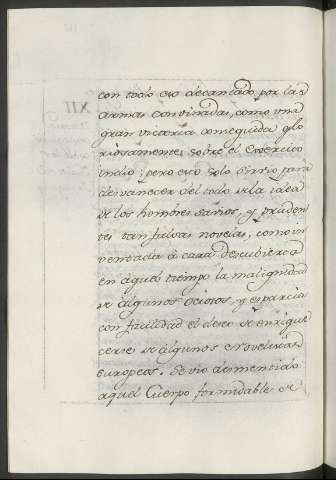 con todo eso decantado por las
armas convinadas, como una
gran victoria conseguida glo
riosamente sobre el Exercito
Yndio; pero esto solo sirvio para
desvanecer del todo de la idea
de los hombres sanos, y pruden
tes tan falsas novelas, como in
ventada á cara descubierta
en aquel tiempo la malignidad
de algunos ociosos, y esparcia
con facilidad el deseo de enrique
cerse de algunos Novelistas
europeos. Se vio desmentido
aquel Cuerpo formidable de
XII